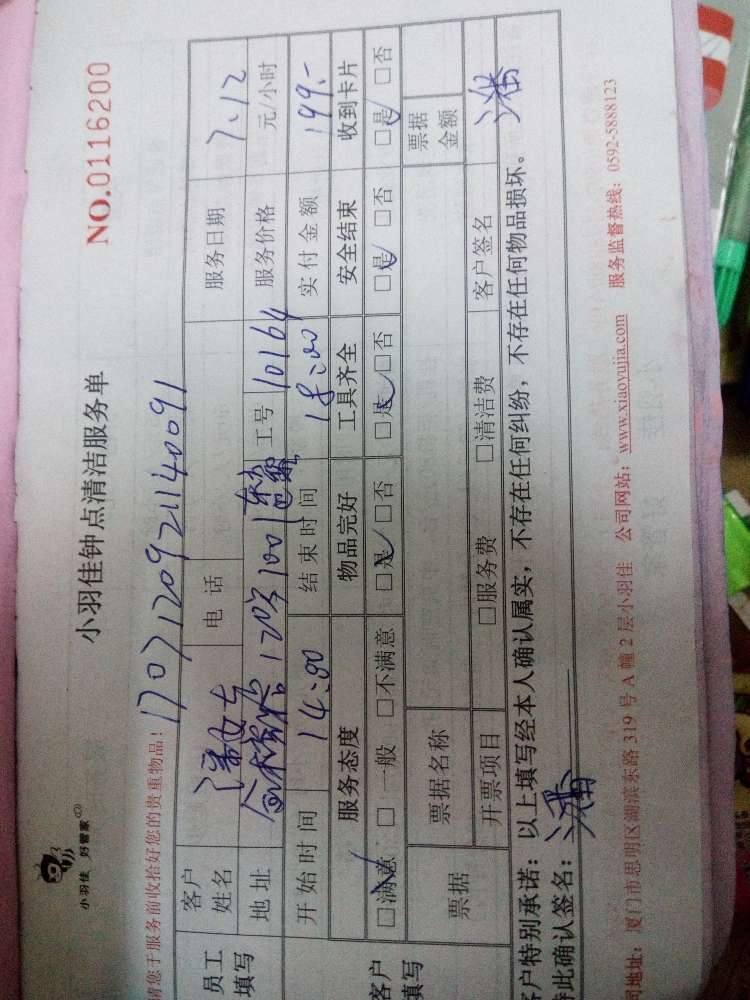 小羽佳 好管家
小羽佳钟点清洁服务单
NO.0116200
请您于服务前收拾好您的贵重物品!
1707120921140091
员工填写
客户姓名 潘女士 电话 服务日期 7.12
地址 1203 1001 工号 10164 服务价格 元/小时
开始时间 14:00 结束时间 18:00 实付金额 199.-
客户填写
服务态度 物品完好 工具齐全 安全结束 收到卡片
□满意 □一般 □不满意 □是 □否 □是 □否 □是 □否 □是 □否
票据 票据名称 票据金额
开票项目 □服务费 □清洁费 客户签名 潘
客户特别承诺: 以上填写经本人确认属实,不存在任何纠纷,不存在任何物品损坏。
特此确认签名: 潘
司地址: 厦门市思明区湖滨东路 319 号 A 幢 2 层小羽佳 公司网站: www.xiaoyujia.com 服务监督热线: 0592-5888123